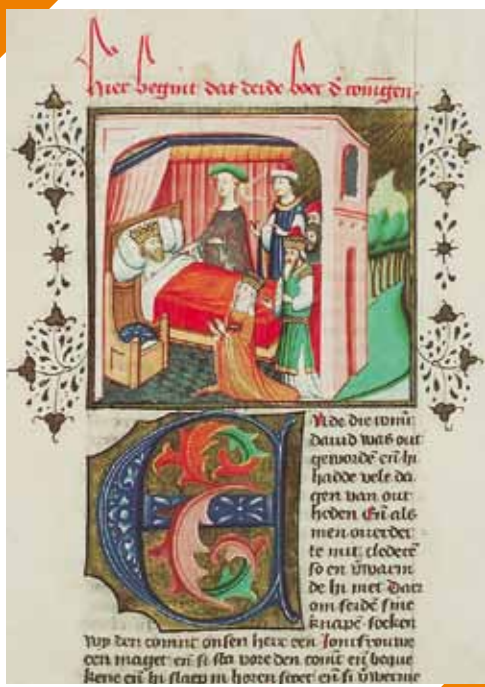 Hier beghint dat derde boec d̄ coningen.
Ende die coninc
dauid was out
gewordē eñ hi
hadde vele da
gen van out
heden Eñ als
men ouerdec
te mit clederē
so en v̄warm
de hi niet Daer
om seidē sine
knapē soeken
wy den coninc onsen here een Joncfrouwe
een maget eñ si sta vore den coninc eñ
kene eñ si slaep in horen scoet eñ si v̄werme